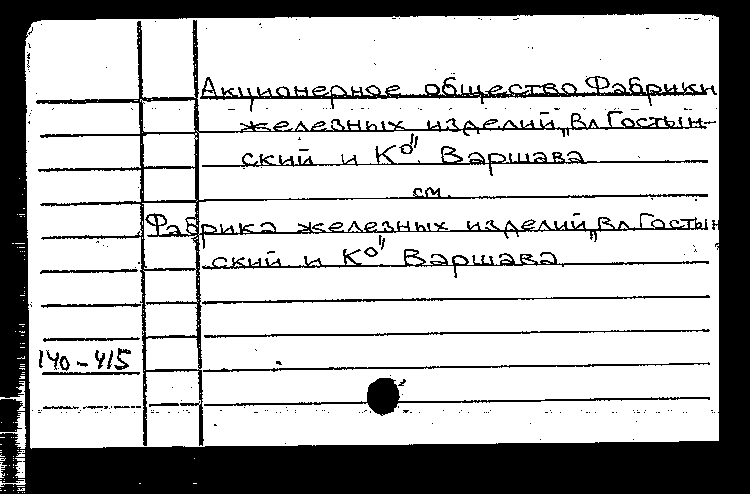 Акционерное общество Фабрики
железных изделий „Вл. Гостын-
ский и К⁰" Варшава
см.
Фабрика железных изделий „Вл. Гостын
ский и К⁰" Варшава
140-415